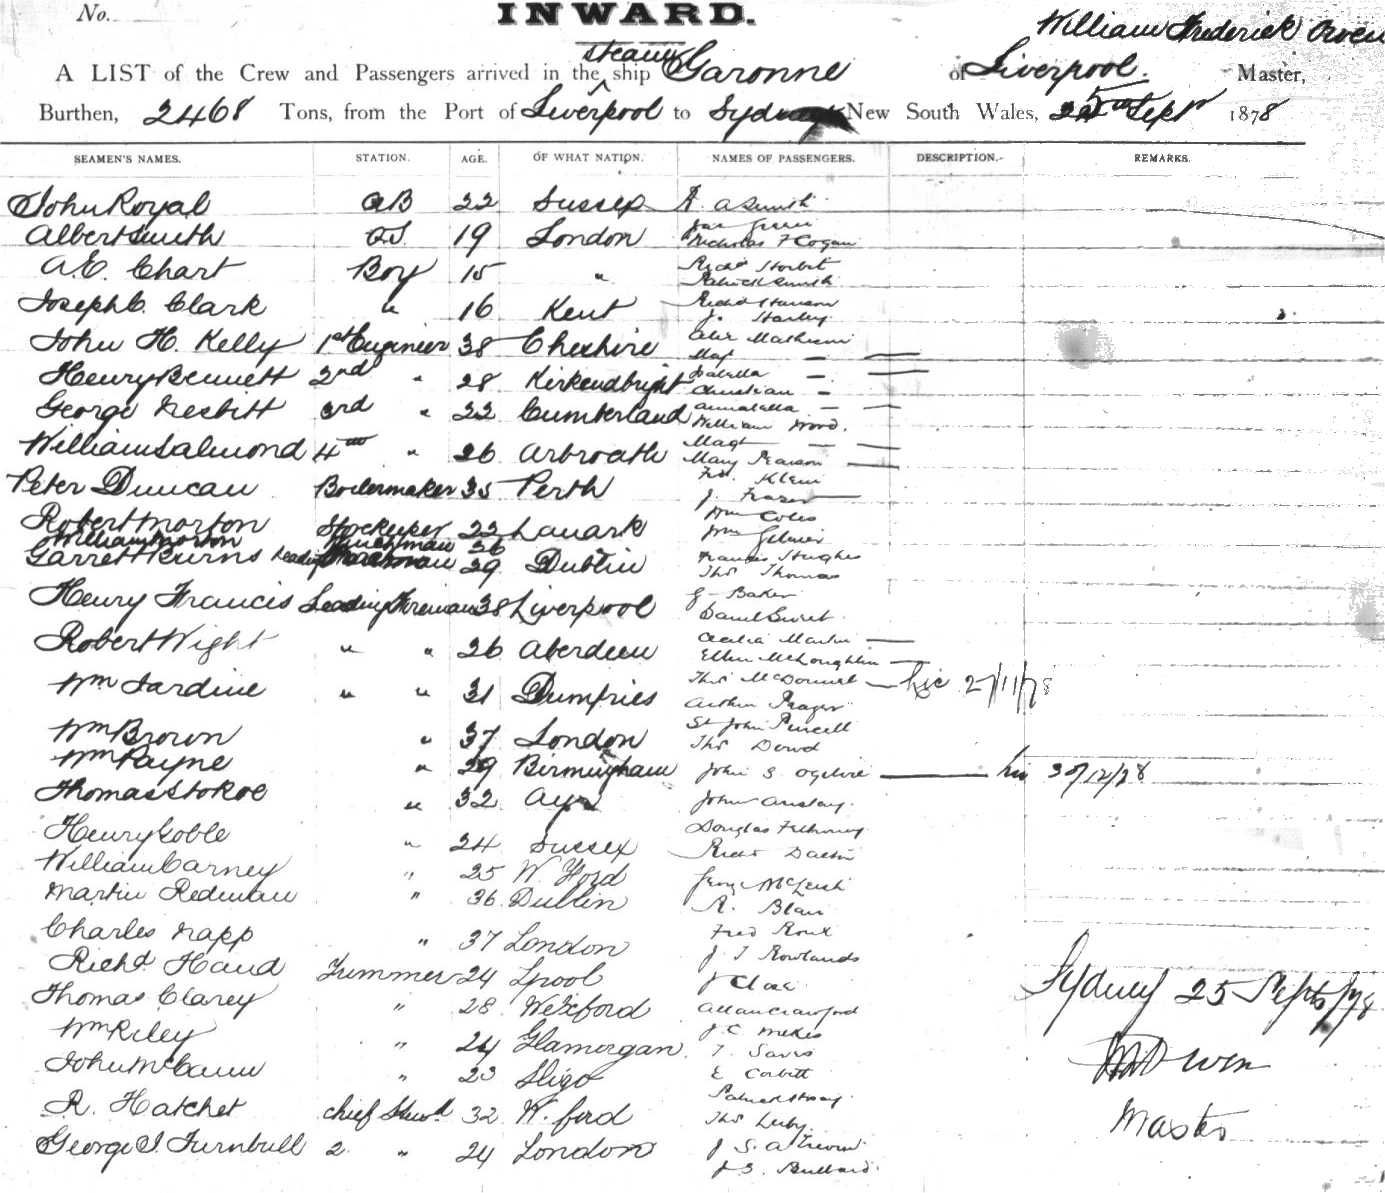 No.
INWARD.
William Frederick Owen
steam
A LIST of the Crew and Passengers arrived in the ship Garonne of Liverpool. Master,
Burthen, 2468 Tons, from the Port of Liverpool to Sydney New South Wales, 25th Sept 1878
SEAMEN'S NAMES. STATION. AGE. OF WHAT NATION. NAMES OF PASSENGERS. DESCRIPTION. REMARKS.
John Royal AB 22 Sussex A. Smith
Albert Smith OS 19 London Nicholas F Cogan
A.E. Chart Boy 15 " Richd
Patrick Smith
Joseph C. Clark " 16 Kent Richd
J. Harley
John H. Kelly 1st Engineer 38 Cheshire
Magt —
Henry Bennett 2nd " 28 Kirkcudbright Isabella —
Christian —
George Nesbitt 3rd " 22 Cumberland Annabella —
William Word.
William Salmond 4th " 26 Arbroath Magt —
Mary Pearson
Peter Duncan Boilermaker 35 Perth Fred. Klein
J. Frazer
Robert Morton Storekeeper 22 Lanark Wm Coles
William Morton 36 Wm Gilmier
Garrett Kurns Leading 29 Dublin Francis Hughes
Thos Thomas
Henry Francis Leading Fireman 38 Liverpool G. Baker
Robert Wight " " 26 Aberdeen Cecilia Martin —
Ellen McLoughlin —
Wm Jardine " " 31 Dumfries Thos McDonnell — 27/11/78
Arthur Frazer
Wm Brown " 37 London St John Purcell
Thos Dowd
Wm Payne " 29 Birmingham John S. Ogilvie 30/12/78
Thomas Stokoe " 32 Ayr John Anstey
Henry Goble " 24 Sussex Douglas
Richd Dalton
William Carney " 25 W. Ford George McLeish
Martin Redman " 36 Dublin R. Blair
Charles Napp " 37 London Fred Roux
J. T Rowlands
Richd Hand Trimmer 24 Lpool J Close
Thomas Clarey " 28 Wexford Allan Crawford
Wm Riley " 24 Glamorgan. J. C
T.
John McCann " 23 Sligo E Corbett
Patrick
R. Hatchet Chief Stewd 32 W. ford Thos
George J. Turnbull 2 " 24 London J S. A Trevor
J S. Bullard
Sydney 25 Sept/78
WF Owen
Master